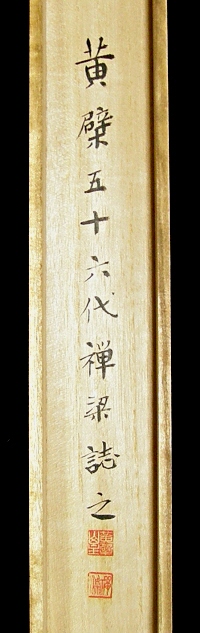 黄檗五十六代禅梁誌之